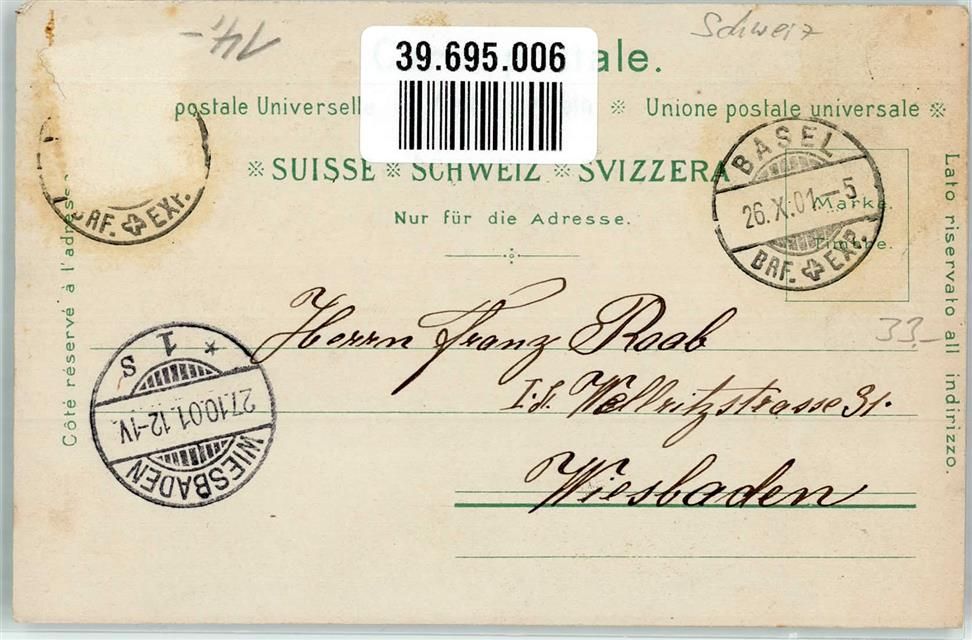 -.14
Schweiz
39.695.006
ale.
postale Universelle
※ Unione postale universale ※
※ SUISSE ※ SCHWEIZ ※ SVIZZERA
Nur für die Adresse.
BRF. EXP.
BASEL
26.X.01.–5
BRF. EXP.
Marke.
Timbre.
Côté réservé à l'adresse
Lato riservato all indirizzo.
33.-
Herrn Franz Raab
Wellritzstrasse 31.
Wiesbaden
WIESBADEN
27.10.01.12-1V.
* 1 S